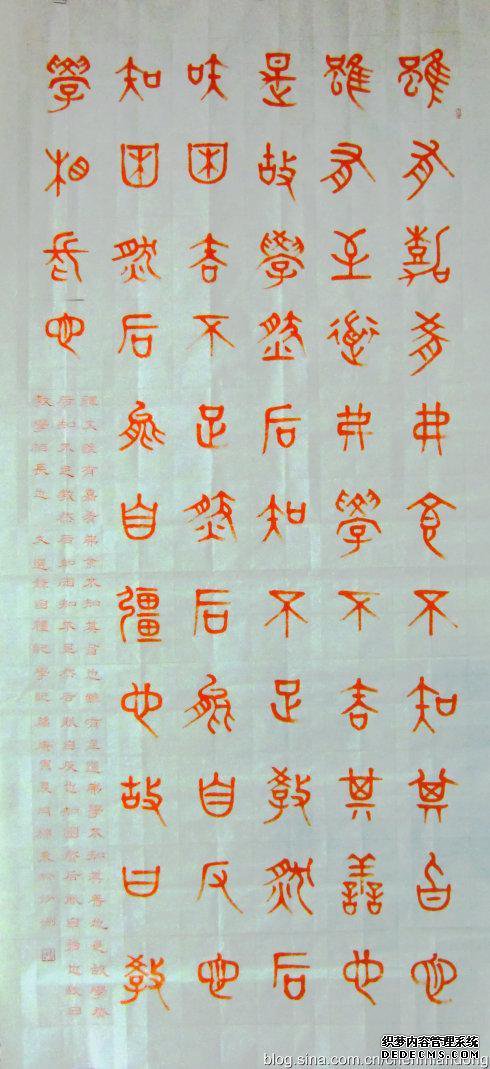 雖有嘉肴弗食不知其旨也
雖有至道弗學不知其善也
是故學然后知不足教然后
知困知不足然后能自反也
知困然后能自彊也故曰教
學相長也
釋文雖有嘉肴弗食不知其旨也雖有至道弗學不知其善也是故學然
后知不足教然后知困知不足然后能自反也知困然后能自彊也故曰
教學相長也 文選錄自禮記學記篇庚寅夏月
织梦内容管理系统
DEDECMS.COM
blog.sina.com.cn